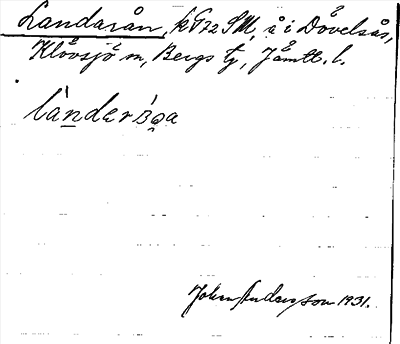 Landasån, kFrz SM, å i Dåvelsås,
Klövsjö sn, Bergs tg, Jämtl. l.
John Anderson 1931.